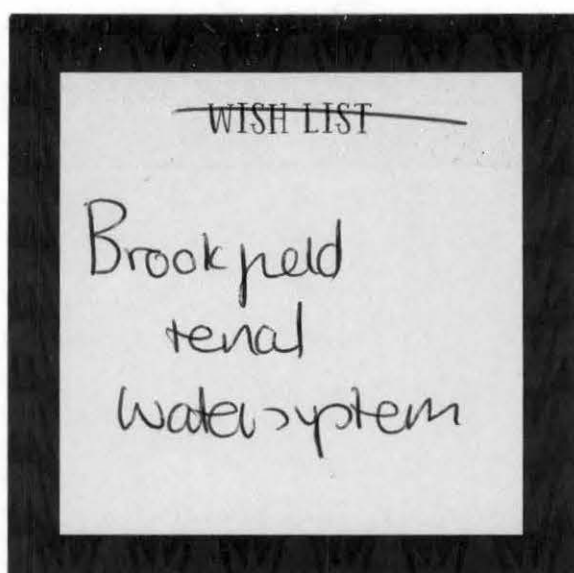 WISH LIST
Brookfield
renal
watersystem